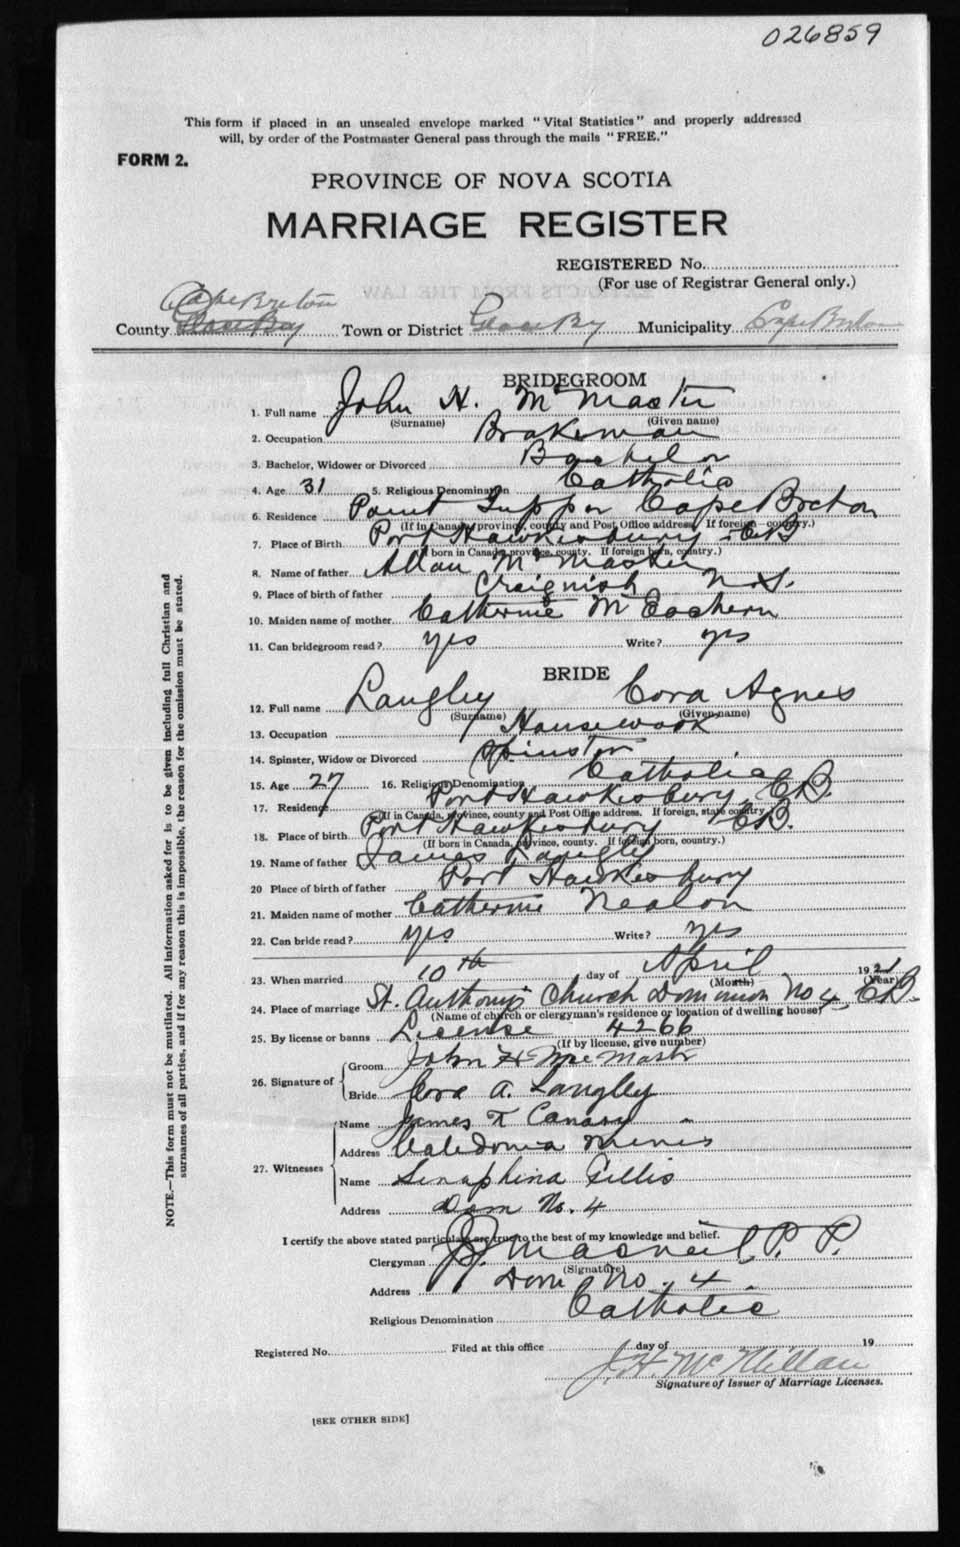 026859
This form if placed in an unsealed envelope marked "Vital Statistics" and properly addressed
will, by order of the Postmaster General pass through the mails "FREE."
FORM 2.
PROVINCE OF NOVA SCOTIA
MARRIAGE REGISTER
REGISTERED No.
(For use of Registrar General only.)
Cape Breton
County Glace Bay Town or District Glace Bay Municipality Cape Breton
BRIDEGROOM
1. Full name John H. McMaster
(Surname) (Given name)
2. Occupation Brakeman
3. Bachelor, Widower or Divorced Bachelor
4. Age 31 5. Religious Denomination Catholic
6. Residence Point Tupper Cape Breton
(If in Canada, province, county and Post Office address. If foreign—country.)
7. Place of Birth Port Hawkesbury, CB
(If born in Canada, province, county. If foreign born, country.)
8. Name of father Allan McMaster
9. Place of birth of father Craignish N.S.
10. Maiden name of mother Catherine McEachern
11. Can bridegroom read? yes Write? yes
BRIDE
12. Full name Langley Cora Agnes
(Surname) (Given name)
13. Occupation Housework
14. Spinster, Widow or Divorced Spinster
15. Age 27 16. Religious Denomination Catholic
17. Residence Port Hawkesbury, CB.
(If in Canada, province, county and Post Office address. If foreign, state country.)
18. Place of birth Port Hawkesbury CB.
(If born in Canada, province, county. If foreign born, country.)
19. Name of father James Langley
20 Place of birth of father Port Hawkesbury
21. Maiden name of mother Catherine Nealon
22. Can bride read? yes Write? yes
23. When married 10th day of April 1921
(Month) (Year)
24. Place of marriage St. Anthony's Church Dominion No 4, CB.
(Name of church or clergyman's residence or location of dwelling house)
25. By license or banns License 4266
(If by license, give number)
26. Signature of Groom John H MacMaster
Bride Cora A. Langley
27. Witnesses Name James T Canary
Address Caledonia Mines
Name Seraphina Gillis
Address Dom No. 4
I certify the above stated particulars are true to the best of my knowledge and belief.
Clergyman J.J. MacNeil P.P.
(Signature)
Address Dom No. 4.
Religious Denomination Catholic
Registered No. Filed at this office day of 19
J. H. McMillan
Signature of Issuer of Marriage Licenses.
[SEE OTHER SIDE]
NOTE.—This form must not be mutilated. All information asked for is to be given including full Christian and
surnames of all parties, and if for any reason this is impossible, the reason for the omission must be stated.